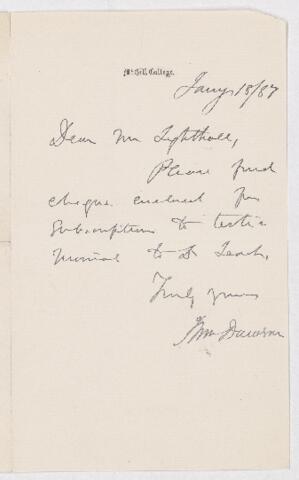 McGill College.
Jany 18/87
Dear Mr Lighthall,
Please find
cheque enclosed for
Subscription to testi-
monial to Dr Leach.
Truly yours
Wm Dawson